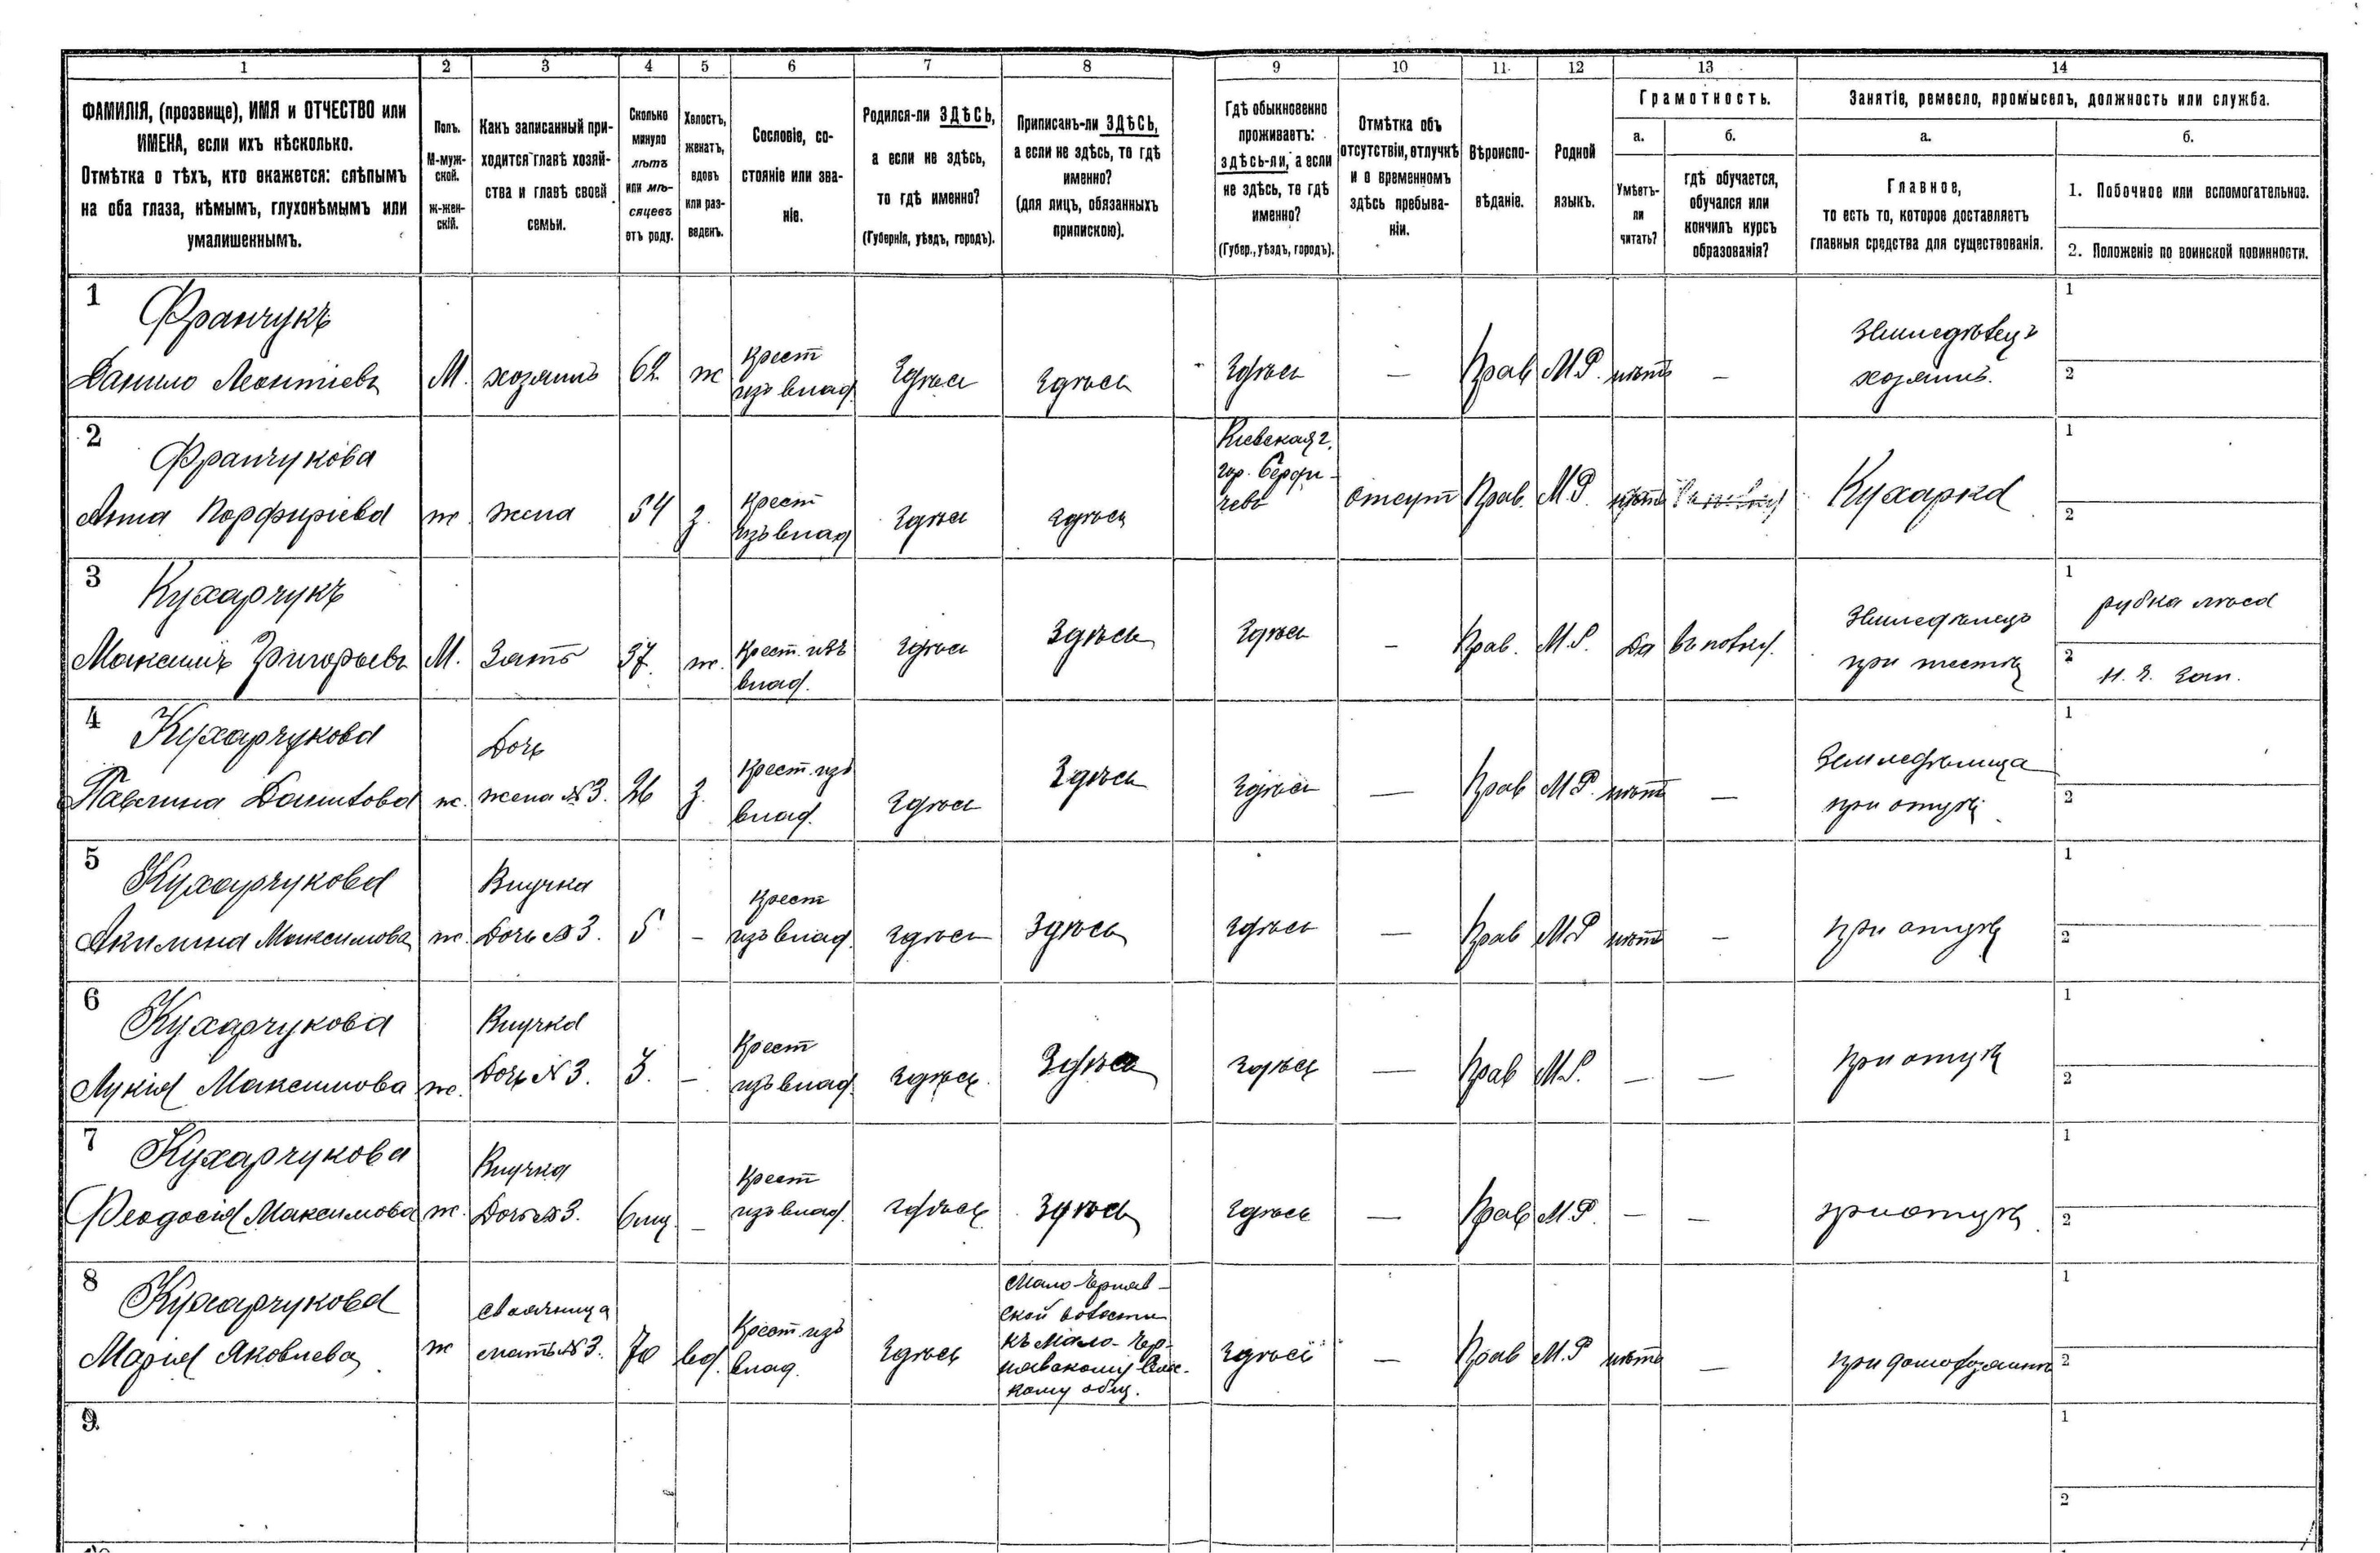 1 2 3 4 5 6 7 8 9 10 11 12 13 14
ФАМИЛІЯ, (прозвище), ИМЯ и ОТЧЕСТВО или
ИМЕНА, если ихъ нѣсколько.
Отмѣтка о тѣхъ, кто окажется: слѣпымъ
на оба глаза, нѣмымъ, глухонѣмымъ или
умалишеннымъ.
Полъ.
М-муж-
ской.
Ж-жен-
скій.
Какъ записанный при-
ходится главѣ хозяй-
ства и главѣ своей
семьи.
Сколько
минуло
лѣтъ
или мѣ-
сяцевъ
отъ роду.
Холостъ,
женатъ,
вдовъ
или раз-
веденъ.
Сословіе, со-
стояніе или зва-
ніе.
Родился-ли ЗДѢСЬ,
а если не здѣсь,
то гдѣ именно?
(Губернія, уѣздъ, городъ).
Приписанъ-ли ЗДѢСЬ,
а если не здѣсь, то гдѣ
именно?
(для лицъ, обязанныхъ
припискою).
Гдѣ обыкновенно
проживаетъ:
здѣсь-ли, а если
не здѣсь, то гдѣ
именно?
(Губер., уѣздъ, городъ).
Отмѣтка объ
отсутствіи, отлучкѣ
и о временномъ
здѣсь пребыва-
ніи.
Вѣроиспо-
вѣданіе.
Родной
языкъ.
Грамотность.
а.
Умѣетъ-
ли
читать?
б.
гдѣ обучается,
обучался или
кончилъ курсъ
образованія?
Занятіе, ремесло, промыселъ, должность или служба.
а.
Главное,
то есть то, которое доставляетъ
главныя средства для существованія.
б.
1. Побочное или вспомогательное.
2. Положеніе по воинской повинности.
1
Франчукъ
Данило Леонтіевъ
М.
хозяинъ
62
ж
Крест
изъ влад.
Здѣсь
Здѣсь
Здѣсь
—
Прав
М.Р.
нѣтъ
—
Земледѣлецъ
хозяинъ.
1
2
2
Франчукова
Анна Порфиріева
ж
жена
54
з.
Крест
изъ влад
Здѣсь
Здѣсь
Кіевская г.
гор. Берди-
чевъ
отсут
Прав.
М.Р.
нѣтъ
Кухарка
1
2
3
Кухарчукъ
Максимъ Григорьевъ
М.
Зять
37
ж.
Крест. изъ
влад.
Здѣсь
Здѣсь
Здѣсь
—
Прав.
М.Р.
Да
Земледѣлецъ
при тестѣ
1
рубка лѣса
2
4
Кухарчукова
Павлина Данилова
ж.
Дочь
жена №3.
26
з.
Крест. изъ
влад.
Здѣсь
Здѣсь
Здѣсь
—
Прав
М.Р.
нѣтъ
—
Земледѣлица
при отцѣ
1
2
5
Кухарчукова
Акилина Максимова
ж.
Внучка
Дочь №3.
5
—
Крест
изъ влад.
Здѣсь
Здѣсь
Здѣсь
—
Прав
М.Р
нѣтъ
—
при отцѣ
1
2
6
Кухарчукова
Лукія Максимова
ж.
Внучка
Дочь №3.
3.
—
Крест
изъ влад.
Здѣсь
Здѣсь
Здѣсь
—
Прав
М.Р.
—
—
при отцѣ
1
2
7
Кухарчукова
Феодосія Максимова
ж.
Внучка
Дочь №3.
6 мц.
—
Крест
изъ влад.
Здѣсь
Здѣсь
Здѣсь
—
Прав
М.Р.
—
—
при отцѣ
1
2
8
Кухарчукова
Марія Яковлева
ж
мать №3.
70
вд.
Крест изъ
влад.
Здѣсь
Мало-Черняв-
ской волости
къ Мало-Чер-
нявскому Сель-
кому общ.
Здѣсь
—
Прав
М.Р
нѣтъ
—
при домохозяинѣ
1
2
9.
1
2